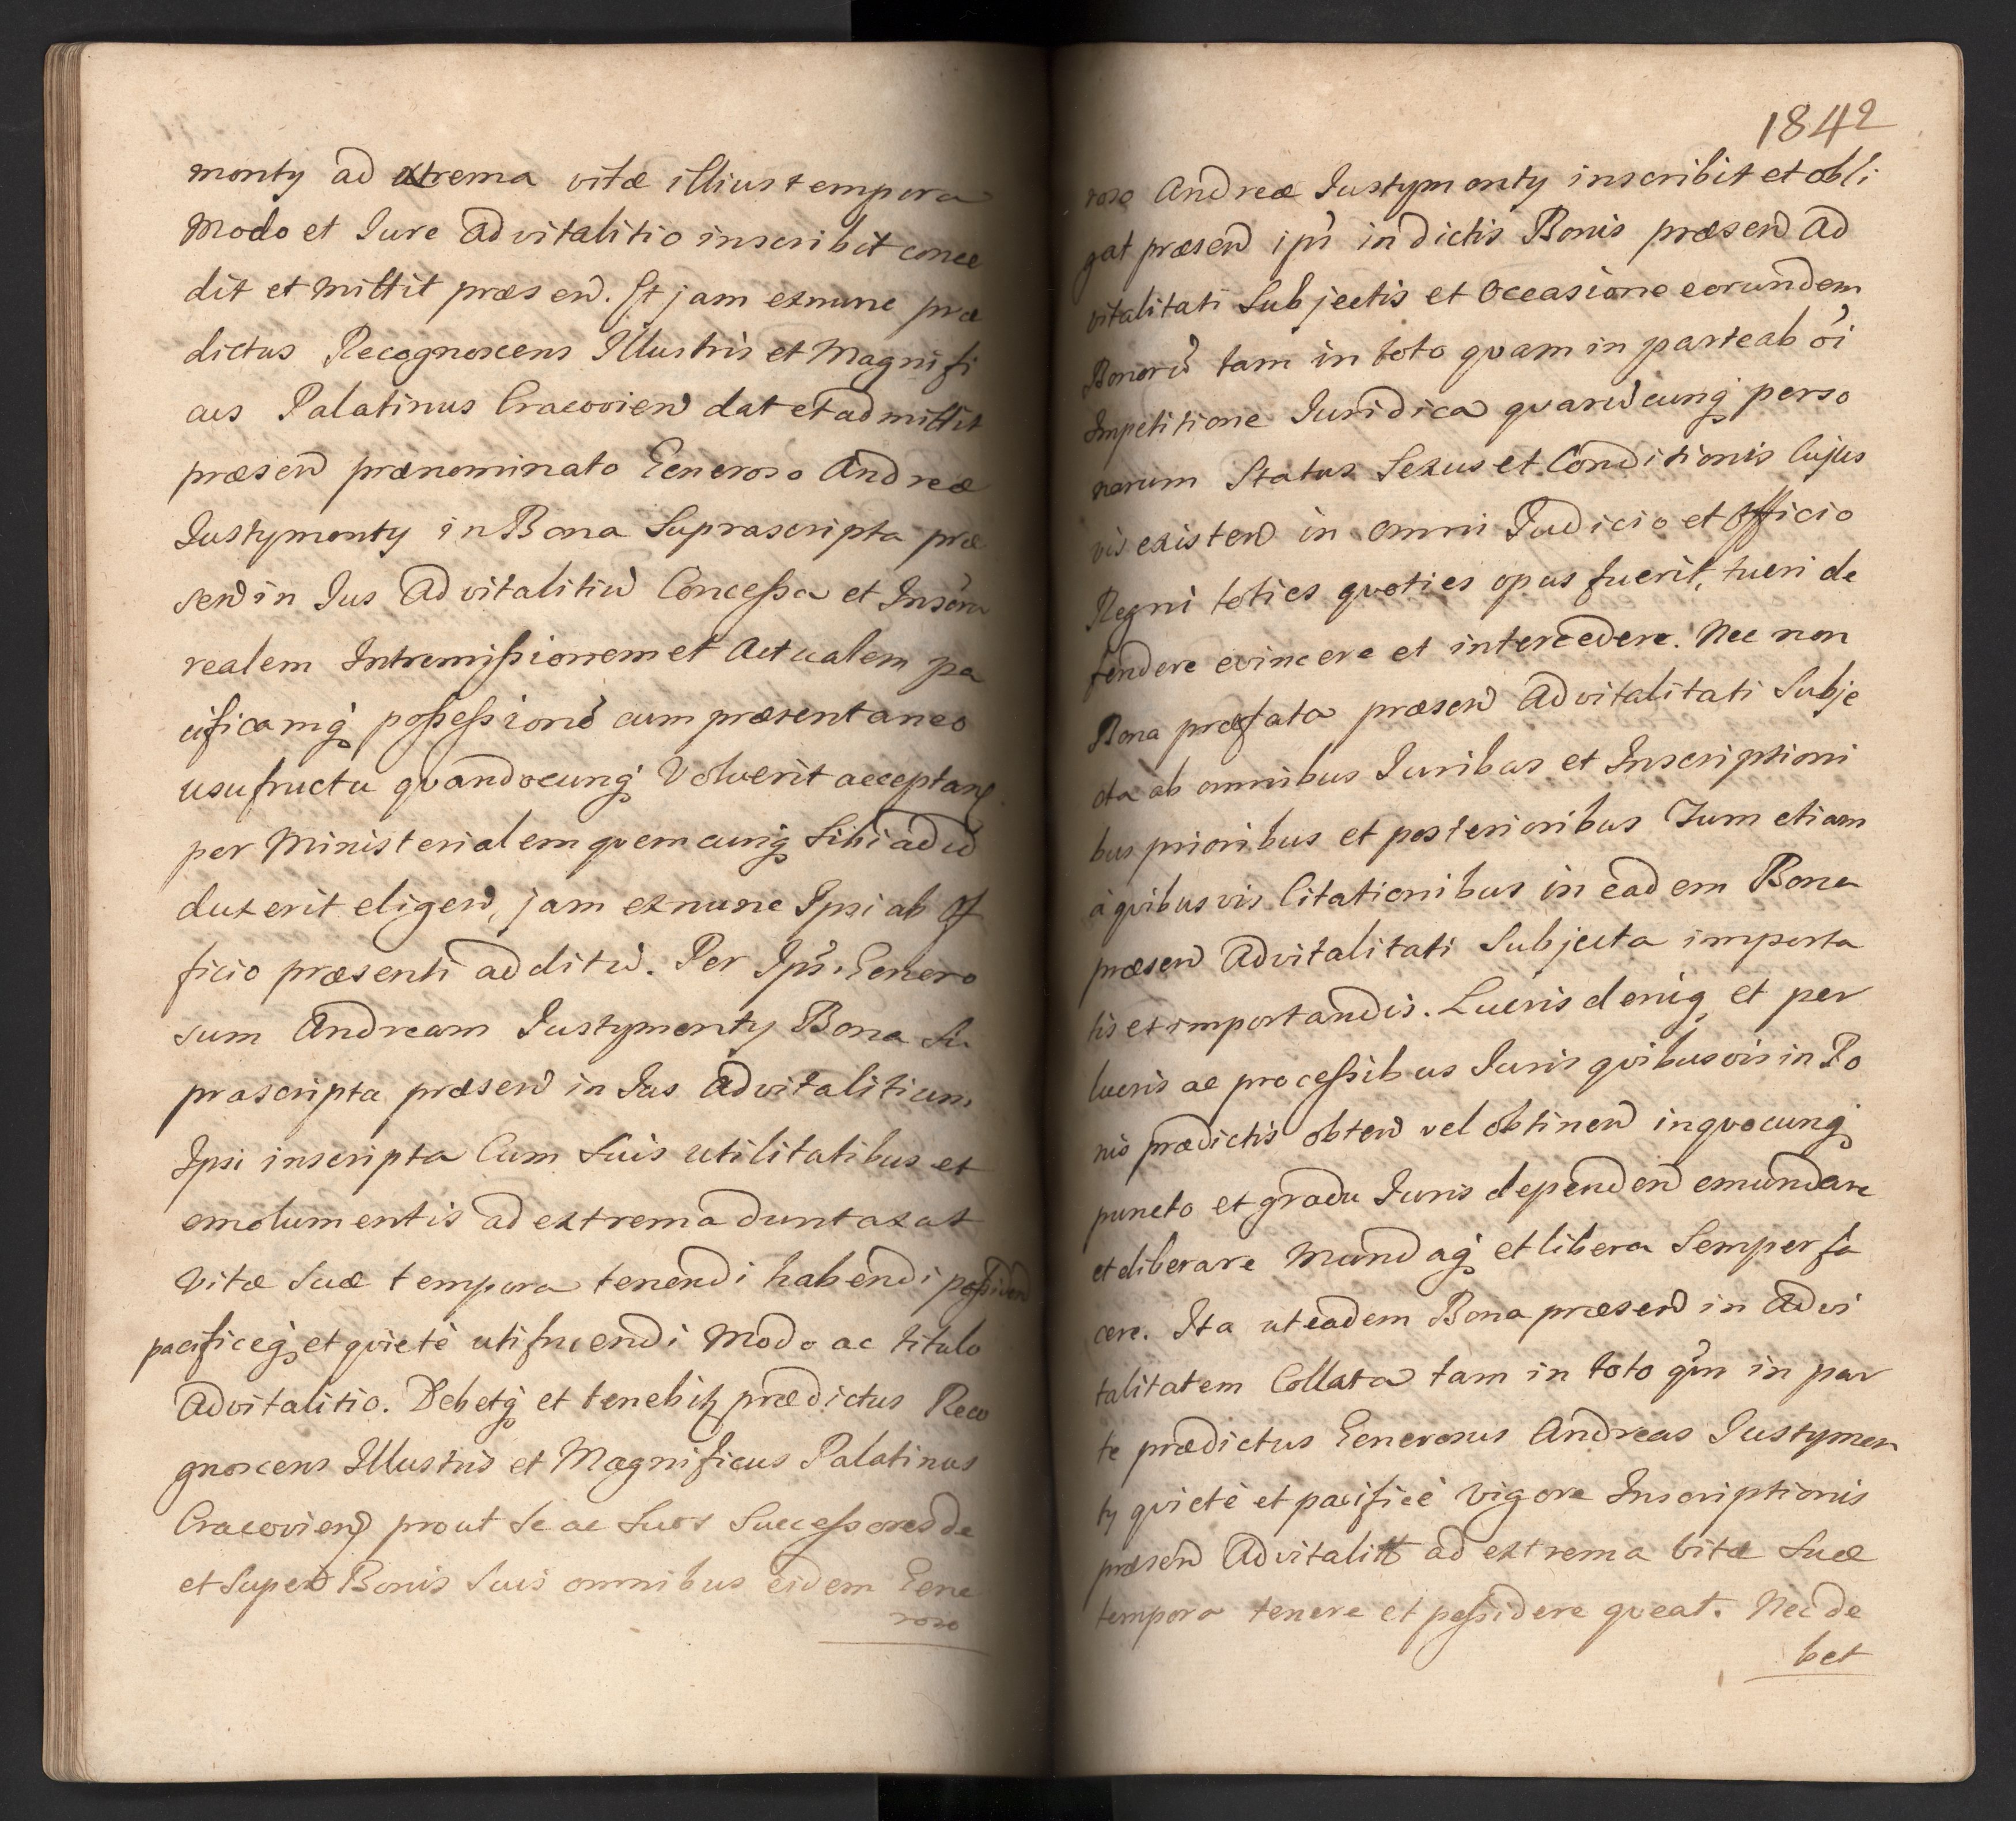 monty ad extrema vitæ illius tempora
Modo et Iure Advitalitio inscribit conce
dit et mittit præsen. Et jam exnunc præ
dictus Recognoscens Illustris et Magnifi
cus Palatinus Cracovien dat et admittit
præsen prænominato Generoso Andreæ
Justymonty in Bona Suprascripta præ
sen in Ius Advitalitiu Concessa et
realem Intromissionem et Actualem pa
cificamq possessione cum præsentaneo
usufructu quandocunq Voluerit acceptan
per Ministerialem quemcunq Sibi ad id
duxerit eligen, jam exnunc Ipsi ab Of
ficio præsenti additu. Per Ips. Genero
sum Andream Justymonty Bona Su
prascripta præsen in Ius Advitalitium
Ipsi inscripta Cum Suis utilitatibus et
emolumentis ad extrema duntaxat
Vitæ Suæ tempora tenendi habendi possiden
pacificeq et quietè utifruendi Modo ac titulo
Advitalitio. Debetq et tenebit prædictus Reco
gnoscens Illustris et Magnificus Palatinus
Cracovien prout Se ac Suos Successores de
et Super Bonis Suis omnibus eidem Gene
roso
1842
roso Andreæ Justymonty inscribit et obli
gat præsen ipi in dictis Bonis præsen Ad
vitalitati Subjectis et Occasione eorundem
Bonoru tam in toto quam in parte ab oi
Impetitione Iuridica quarucunq perso
narum Status Sexus et Conditionis Cujus
vis existen in omni Iudicio et Officio
Regni toties quoties opus fuerit, tueri de
fendere evincere et intercedere. Nec non
Bona præfata præsen Advitalitati Subje
cta ab omnibus Iuribus et Inscriptioni
bus prioribus et posterioribus Tum etiam
à quibusvis Citationibus in eadem Bona
præsen Advitalitati Subjecta importa
tis et importandis. Lucris deniq et per
lucris ac processibus Iuris quibusvis in Bo
nis prædictis obten vel obtinen in quocunq
puncto et gradu Iuris dependen emundare
et eliberare Mundaq et libera Semper fa
cere. Ita ut eadem Bona præsen in Advi
talitatem Collata tam in toto qm in par
te prædictus Generosus Andreas Justymon
ty quietè et pacificè vigore Inscriptionis
præsen Advitalitt ad extrema vitæ Suæ
tempora tenere et possidere queat. Nec de
bet